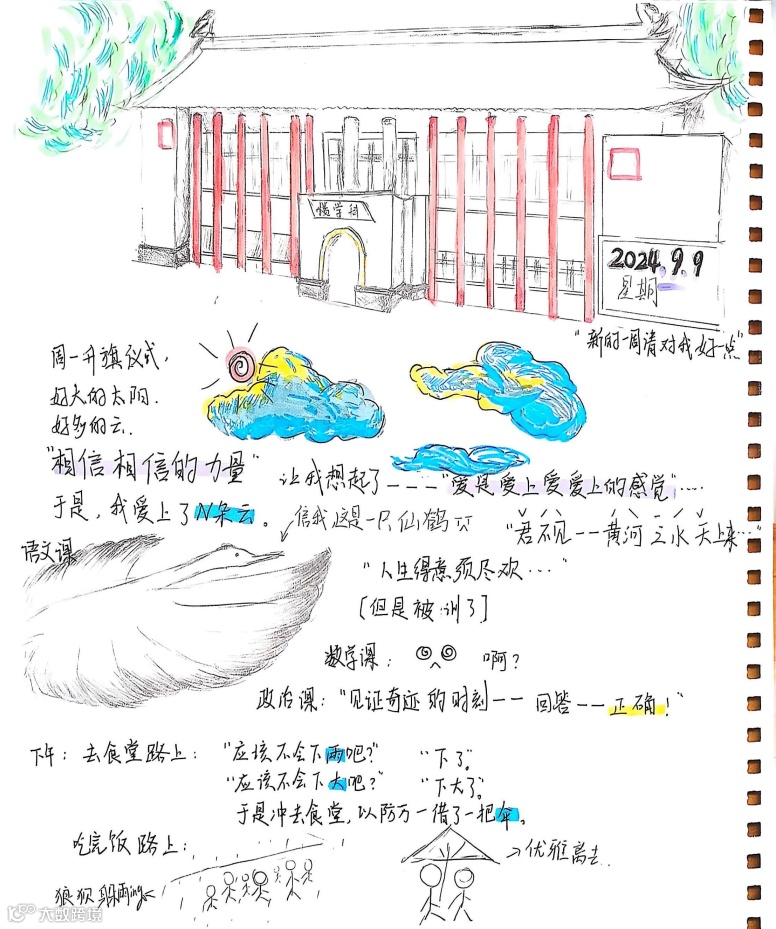 慢学科
2024.9.9
星期一
"新的一周请对我好一点"
周一升旗仪式,
好大的太阳.
好多的云.
"相信相信的力量"
让我想起了----"爱是爱上爱爱上的感觉"....
于是,我爱上了N朵云。
信我这是一只仙鹤
语文课
"君不见--黄河之水天上来…"
"人生得意须尽欢…"
[但是被训了]
数学课: 啊?
政治课:"见证奇迹的时刻--回答--正确!"
下午:去食堂路上:"应该不会下雨吧?" "下了"。
"应该不会下大吧?" "下大了"。
于是冲去食堂,以防万一借了一把伞。
吃完饭路上:
→优雅离去..
狼狈躲雨ing
大数跨境